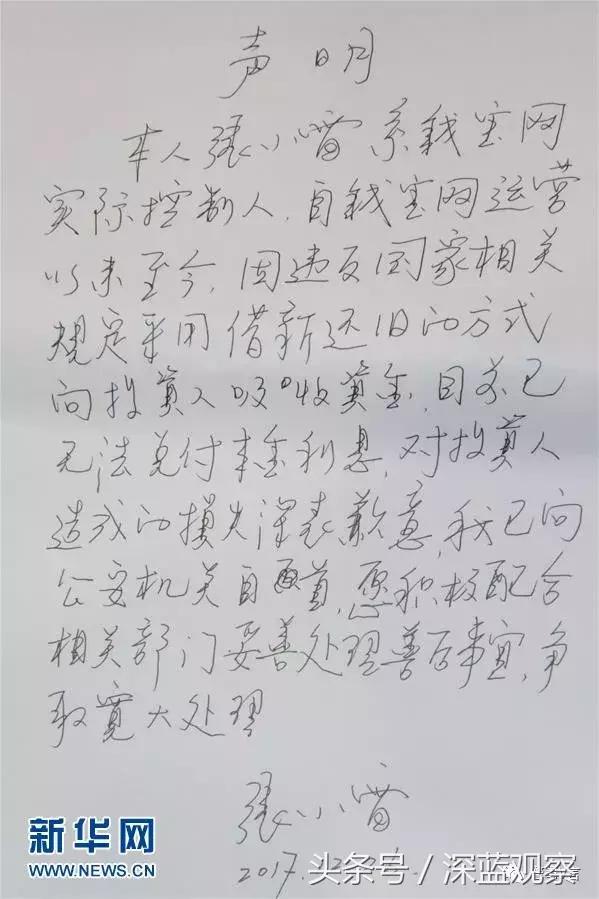 声明
本人張小雷系钱宝网
实际控制人,自钱宝网运营
以来至今,因违反国家相关
規定采用借新还旧的方式
向投資人吸收資金,目前已
无法兑付本金利息,对投資人
造成的損失深表歉意,我已向
公安机关自首,愿积极配合
相关部门妥善处理善后事宜,争
取寬大处理
張小雷
2017.
新华网
WWW.NEWS.CN
头条号 / 深蓝观察